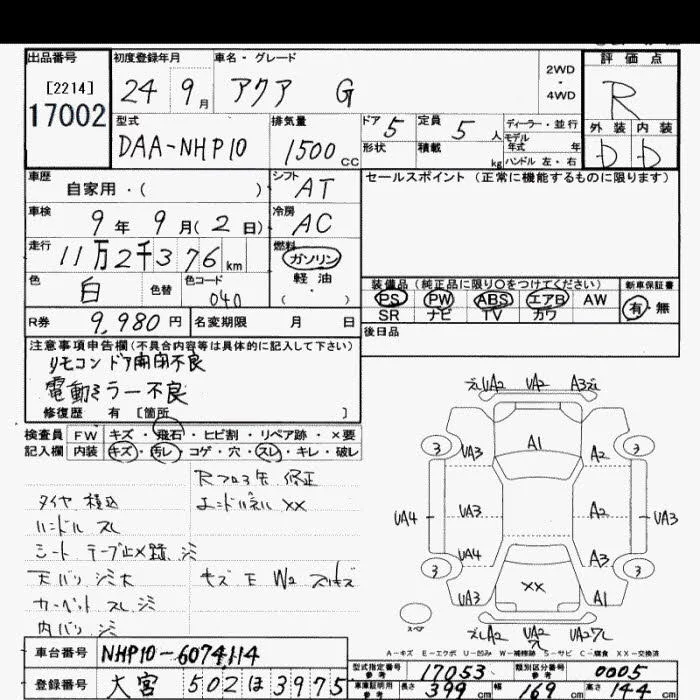 出品番号 初度登録年月 車名・グレード 評価点
[2214] 24 9月 アクア G 2WD・4WD R
17002 型式 排気量 ドア 5 定員 5人 ディーラー・並行 外装 内装
DAA-NHP10 1500cc 形状 積載 kg モデル年式 年 D D
ハンドル 左・右
車歴 シフト セールスポイント(正常に機能するものに限ります)
自家用・( ) AT
車検 9年 9月(2日) 冷房 AC
走行 11万2千376km 燃料 ガソリン
色 白 色替 色コード 040 軽油 (・) 装備品(純正品に限り○をつけてください) 新車保証書
PS PW ABS エアB AW 有・無
R券 9,980円 名変期限 月 日 SR ナビ TV カワ
後日品
注意事項申告欄(不具合内容等は具体的に記入して下さい)
リモコンドア開閉不良
電動ミラー不良
修復歴 有 [箇所 ]
検査員 FW キズ・飛石・ヒビ割・リペア跡・×要
記入欄 内装 キズ・汚レ・コゲ・穴・スレ・キレ・破レ
修正
タイヤ 積込 エンドパネル XX
ハンドル スレ
シート テープ止メ跡 シミ
天バリ シミ大 キズ E W2
カーペット スレ シミ
内バリ シミ
UA2 UA2 A3
A1
3 UA3 A2 3
UA4 UA3 A2 UA3
UA4 A3
3 3
UA3 XX A1
スペア
UA2 UA2
A-キズ E-エクボ U-凹み W-補修跡 S-サビ C-腐食 XX-交換済
車台番号 NHP10-6074114
登録番号 大宮 502 ほ 3975
型式指定番号 参考 17053 類別区分番号 参考 0005
車庫証明用 参考 長さ 399cm 幅 169cm 高さ 144cm